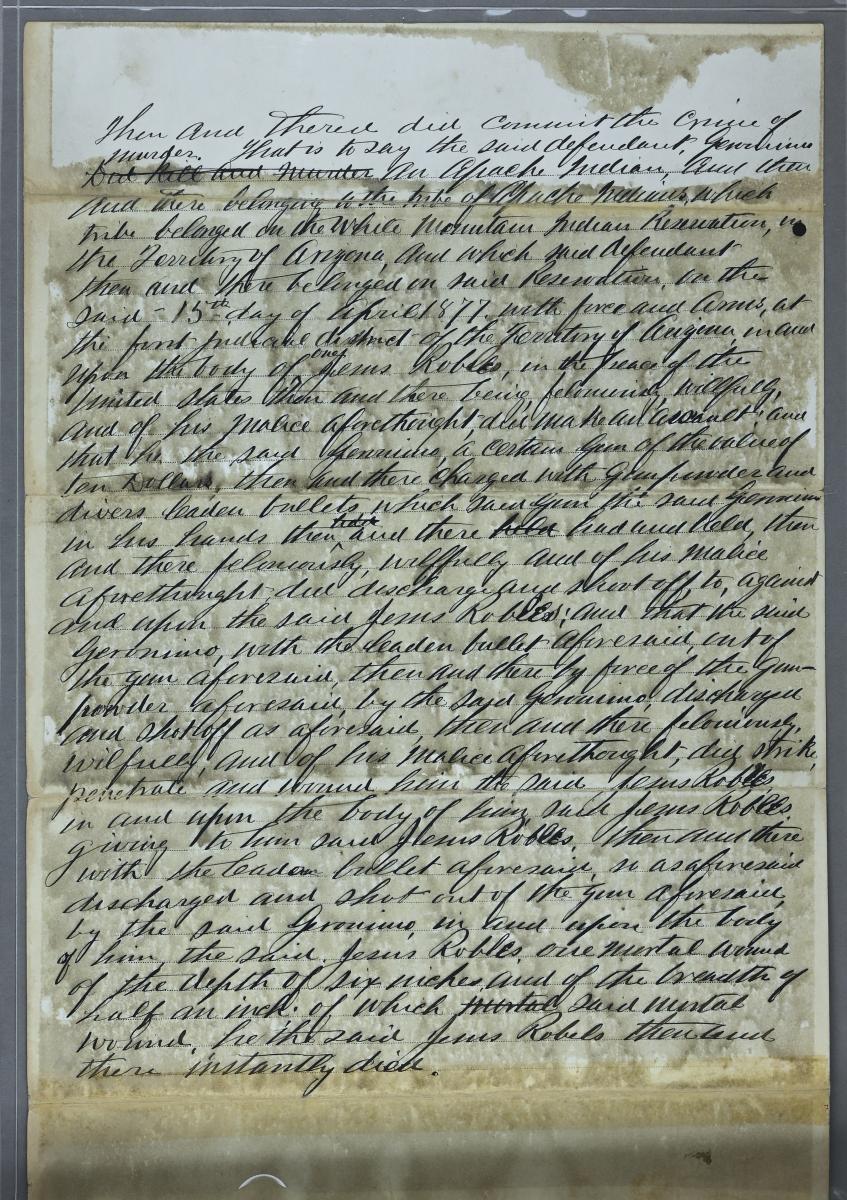 Then and thered did commit the crime of
murder. That is to say the said defendant, Geronimo
Did Kill and Murder an Apache Indian, and then
and there belonging to the tribe of Apache Indians, which
tribe belonged on the White Mountain Indian Reservation, in
the Territory of Arizona, and which said defendant
then and there belonged on said Reservation, on the
said - 15th day of April 1877. with force and Arms, at
the first Judicial district of the Territory of Arizona, in and
upon the body of one Jesus Robles, in the peace of the
United States then and there being, feloniously, willfully,
and of his Malice aforethought did, make an assault; and
that he the said Geronimo, a certain Gun of the value of
ten Dollars, then and there charged with Gunpowder and
divers leaden bullets, which said gun the said Geronimo
in his hands then and there held had and held, then
and there feloniously, willfully and of his malice
aforethought did discharge and shoot off, to, against
and upon the said Jesus Robles; and that the said
Geronimo, with the leaden bullet aforesaid, out of
the gun aforesaid, then and there by force of the Gun-
powder aforesaid, by the said Geronimo, discharged
and shot off as aforesaid, then and there feloniously,
wilfully, and of his Malice aforethought, did strike,
penetrate and wound him the said Jesus Robles
in and upon the body of him, said Jesus Robles
giving to him said Jesus Robles, then and there
with the leaden bullet aforesaid, so as aforesaid
discharged and shot out of the gun aforesaid,
by the said Geronimo, in and upon the body
of him, the said Jesus Robles, one mortal wound
of the depth of six inches, and of the breadth of
half an inch. of which mortal said mortal
wound, he the said Jesus Robels then and
there instantly died.